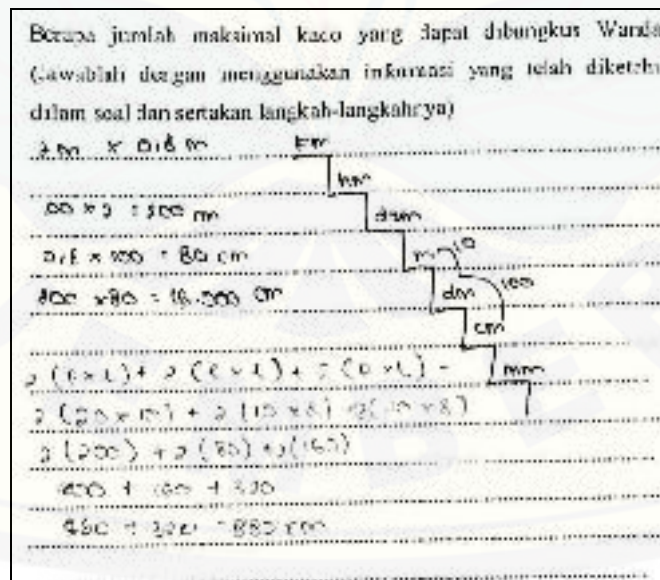 Berapa jumlah maksimal kado yang dapat dibungkus Wanda
(Jawablah dengan menggunakan informasi yang telah diketahu
dalam soal dan sertakan langkah-langkahnya)
2 m × 0,8 m
km
hm
dam
100 × 2 = 200 m
m 10
0,8 × 100 = 80 cm
dm 100
200 × 80 = 16.000 cm
cm
mm
2 (P × L) + 2 (P × L) + 2 (P × L) =
2 (20 × 10) + 2 (10 × 8) + 2 (20 × 8)
2 (200) + 2 (80) + 2 (160)
400 + 160 + 320
560 + 320 = 880 cm